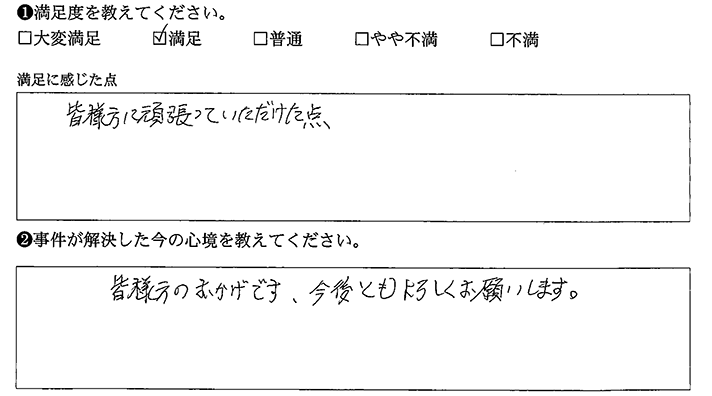 ❶満足度を教えてください。
□大変満足 ☑満足 □普通 □やや不満 □不満
満足に感じた点
皆様方に頑張っていただけた点、
❷事件が解決した今の心境を教えてください。
皆様方のおかげです、今後ともよろしくお願いします。